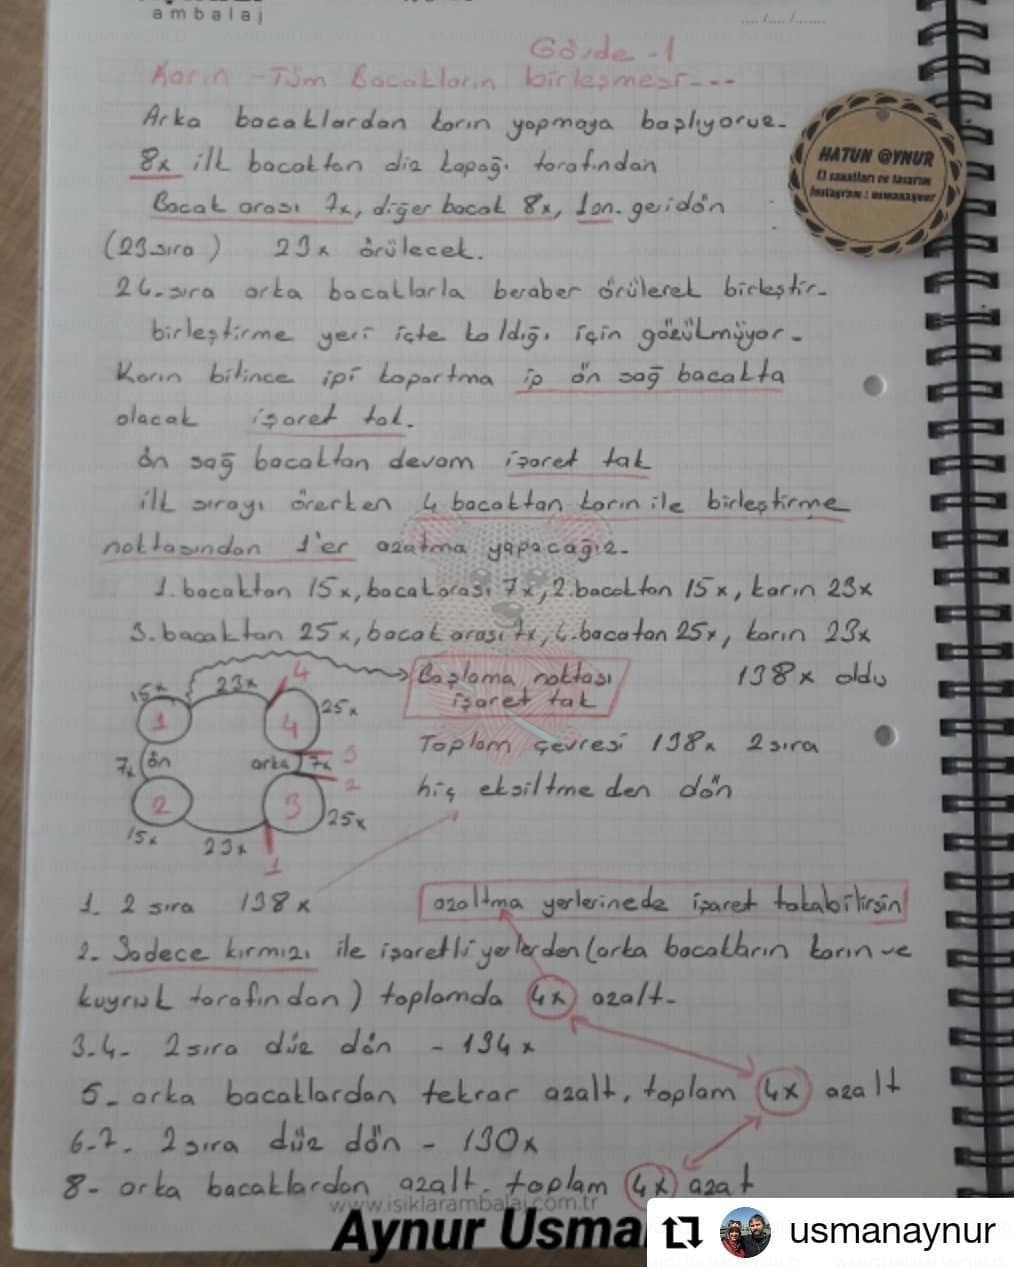 ambalaj
..../..../........
Gövde -1
Karın - Tüm Bacakların birleşmesi----
Arka bacaklardan karın yapmaya başlıyoruz.
8x ilk bacaktan diz kapağı tarafından
Bacak arası 7x, diğer bacak 8x, 1 zn. geri dön
(23 sıra) 23x örülecek.
24. sıra arka bacaklarla beraber örülerek birleştir.
birleştirme yeri içte kaldığı için gözükmüyor.
Karın bitince ipi kopartma ip ön sağ bacakta
olacak işaret tak.
ön sağ bacaktan devam işaret tak
ilk sırayı örerken 4 bacaktan karın ile birleştirme
noktasından 1'er azaltma yapacağız.
1. bacaktan 15x, bacak arası 7x, 2. bacaktan 15x, karın 23x
3. bacaktan 25x, bacak arası 7x, 4. bacatan 25x, karın 23x
138x oldu
Başlama noktası
işaret tak
15x 23x 4
1 4 25x
7x ön arka 7x 3
2
2 3 25x
15x 23x
1
Toplam çevresi 138x 2 sıra
hiç eksiltmeden dön
1. 2 sıra 138x
azaltma yerlerinede işaret takabilirsin
2. Sadece kırmızı ile işaretli yerlerden (arka bacakların karın ve
kuyruk tarafından) toplamda 4x azalt.
3.4. 2 sıra düz dön - 134x
5- arka bacaklardan tekrar azalt, toplam 4x azalt
6.7. 2 sıra düz dön - 130x
8- arka bacaklardan azalt. toplam 4x azat
www.isiklarambalaj.com.tr
Aynur Usma
usmanaynur
HATUN @YNUR
El sanatları ve tasarım
Instagram : usmanaynur
AMIGURUMI WORLD